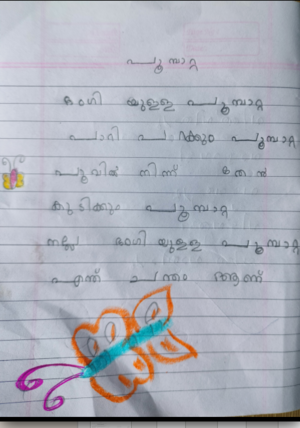 പൂമ്പാറ്റ
ഭംഗി യുള്ള പൂമ്പാറ്റ
പാറി പറക്കും പൂമ്പാറ്റ
പൂവിൽ നിന്ന് തേൻ
കുടിക്കും പൂമ്പാറ്റ
നല്ല ഭംഗി യുള്ള പൂമ്പാറ്റ
എന്ത് ചന്തം ആണ്